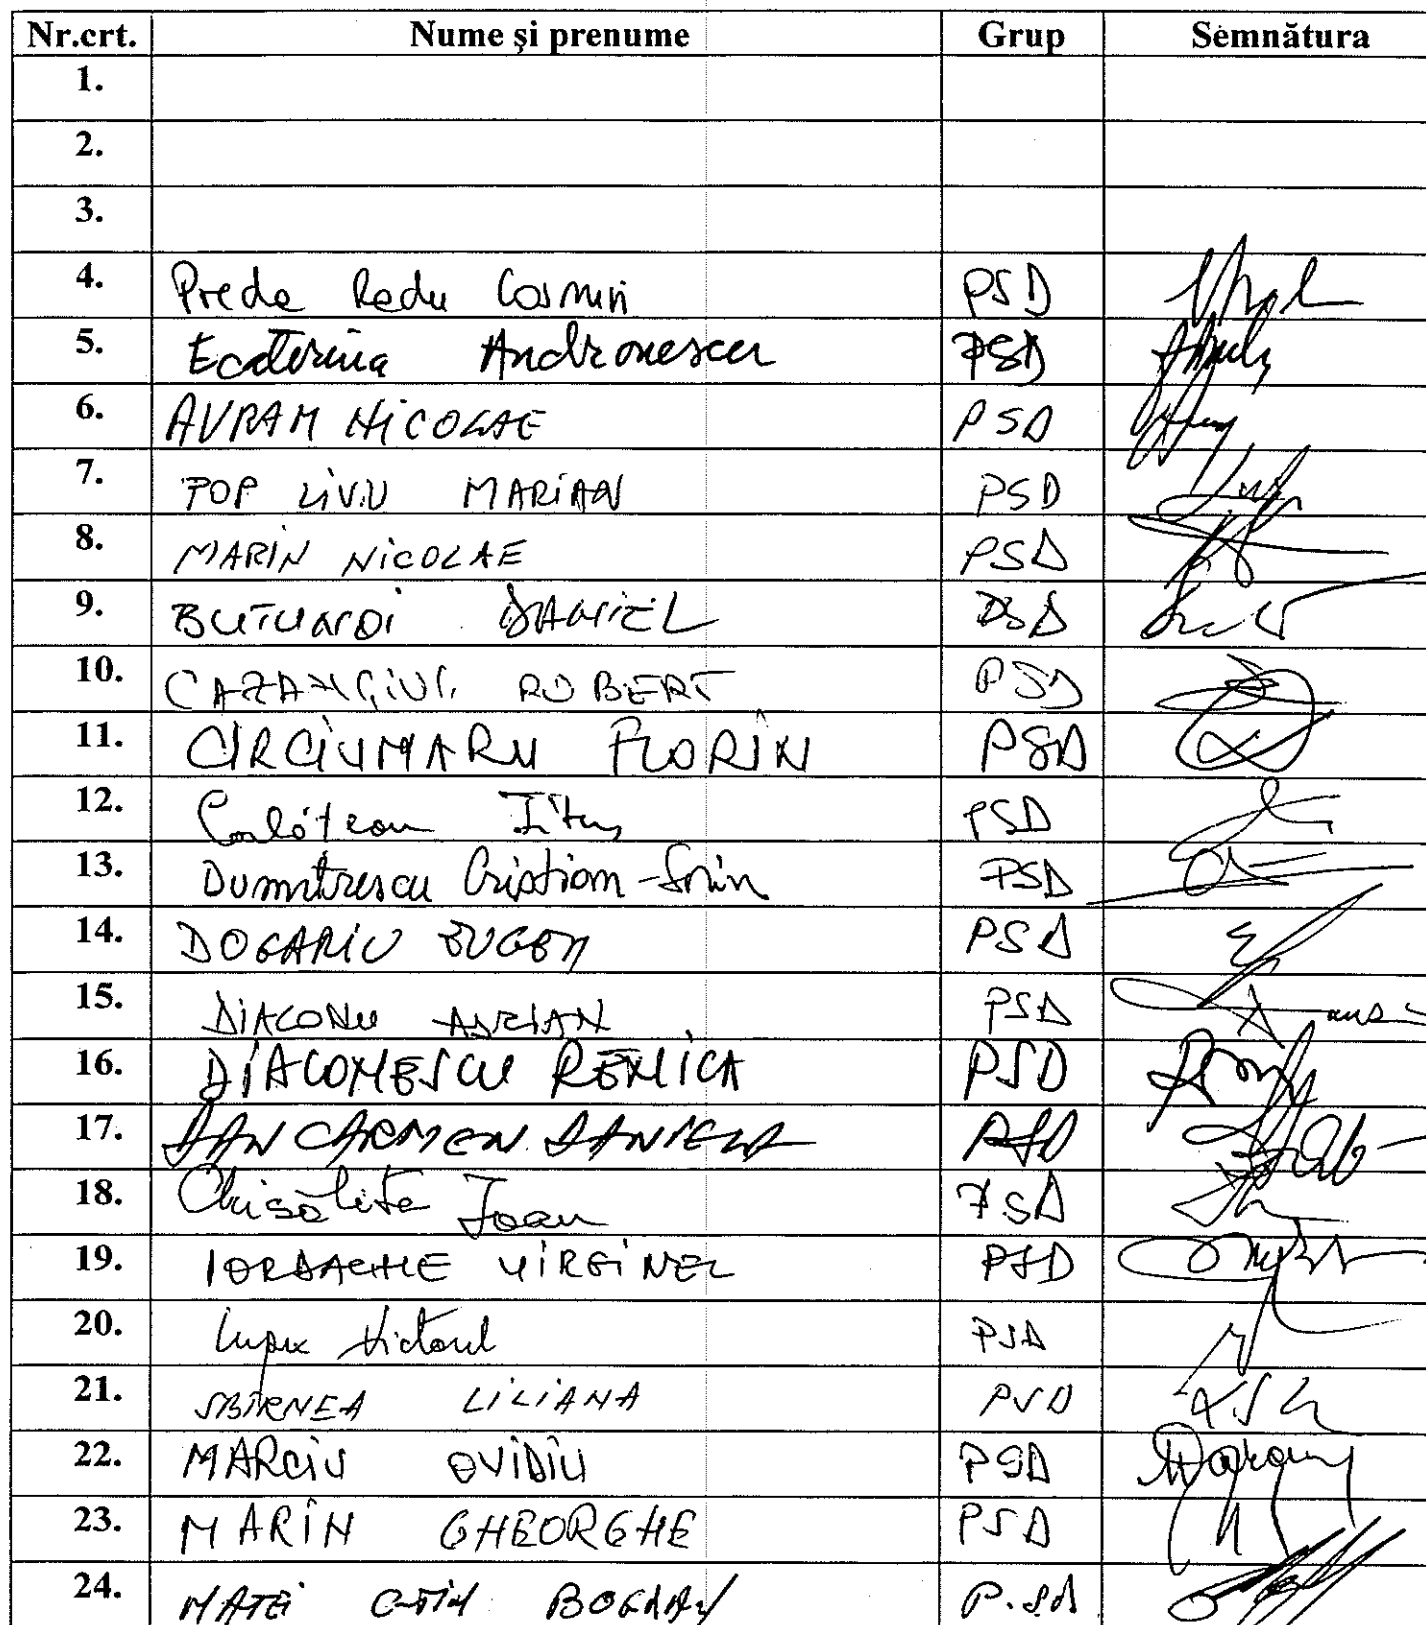 Nr.crt. Nume și prenume Grup Semnătura
1.
2.
3.
4. Preda Radu Cosmin PSD
5. Ecaterina Andronescu PSD
6. AVRAM NICOLAE PSD
7. POP LIVIU MARIAN PSD
8. MARIN NICOLAE PSD
9. BUTUNOI DANIEL PSD
10. CAZANCIUC ROBERT PSD
11. CIRCIUMARU FLORIN PSD
12. Corlățean Titus PSD
13. Dumitrescu Cristian-Sorin PSD
14. DOGARIU EUGEN PSD
15. DIACONU ADRIAN PSD
16. DIACONESCU RENICA PSD
17. DAN CARMEN DANIELA PSD
18. Chisăliță Ioan PSD
19. IORDACHE VIRGINEL PSD
20. Lupu Victorel PSD
21. SBÎRNEA LILIANA PSD
22. MARCIU OVIDIU PSD
23. MARIN GHEORGHE PSD
24. MATEI C-TIN BOGDAN P.SD